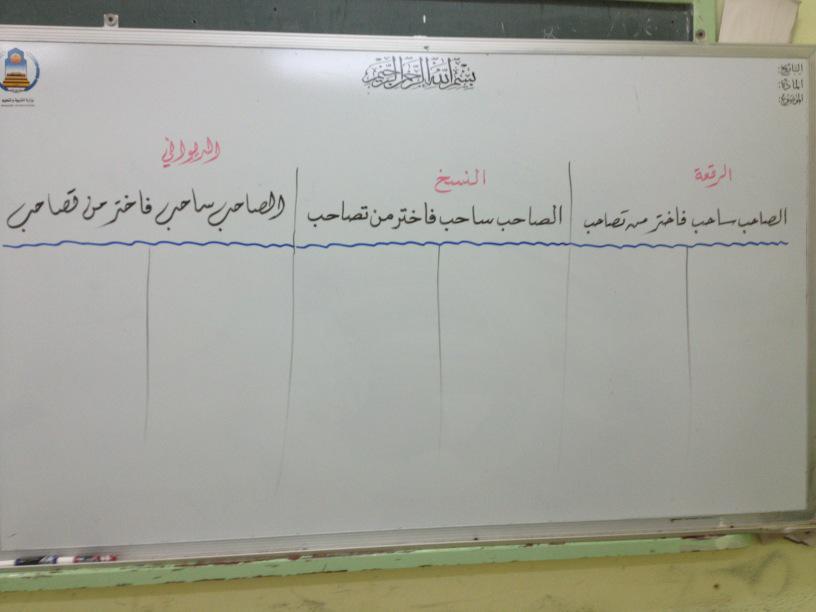 بسم الله الرحمن الرحيم
التاريخ:
المادة:
الموضوع:
وزارة التربية والتعليم
الرقعة
الصاحب ساحب فاختر من تصاحب
النسخ
الصاحب ساحب فاختر من تصاحب
الديواني
الصاحب ساحب فاختر من تصاحب